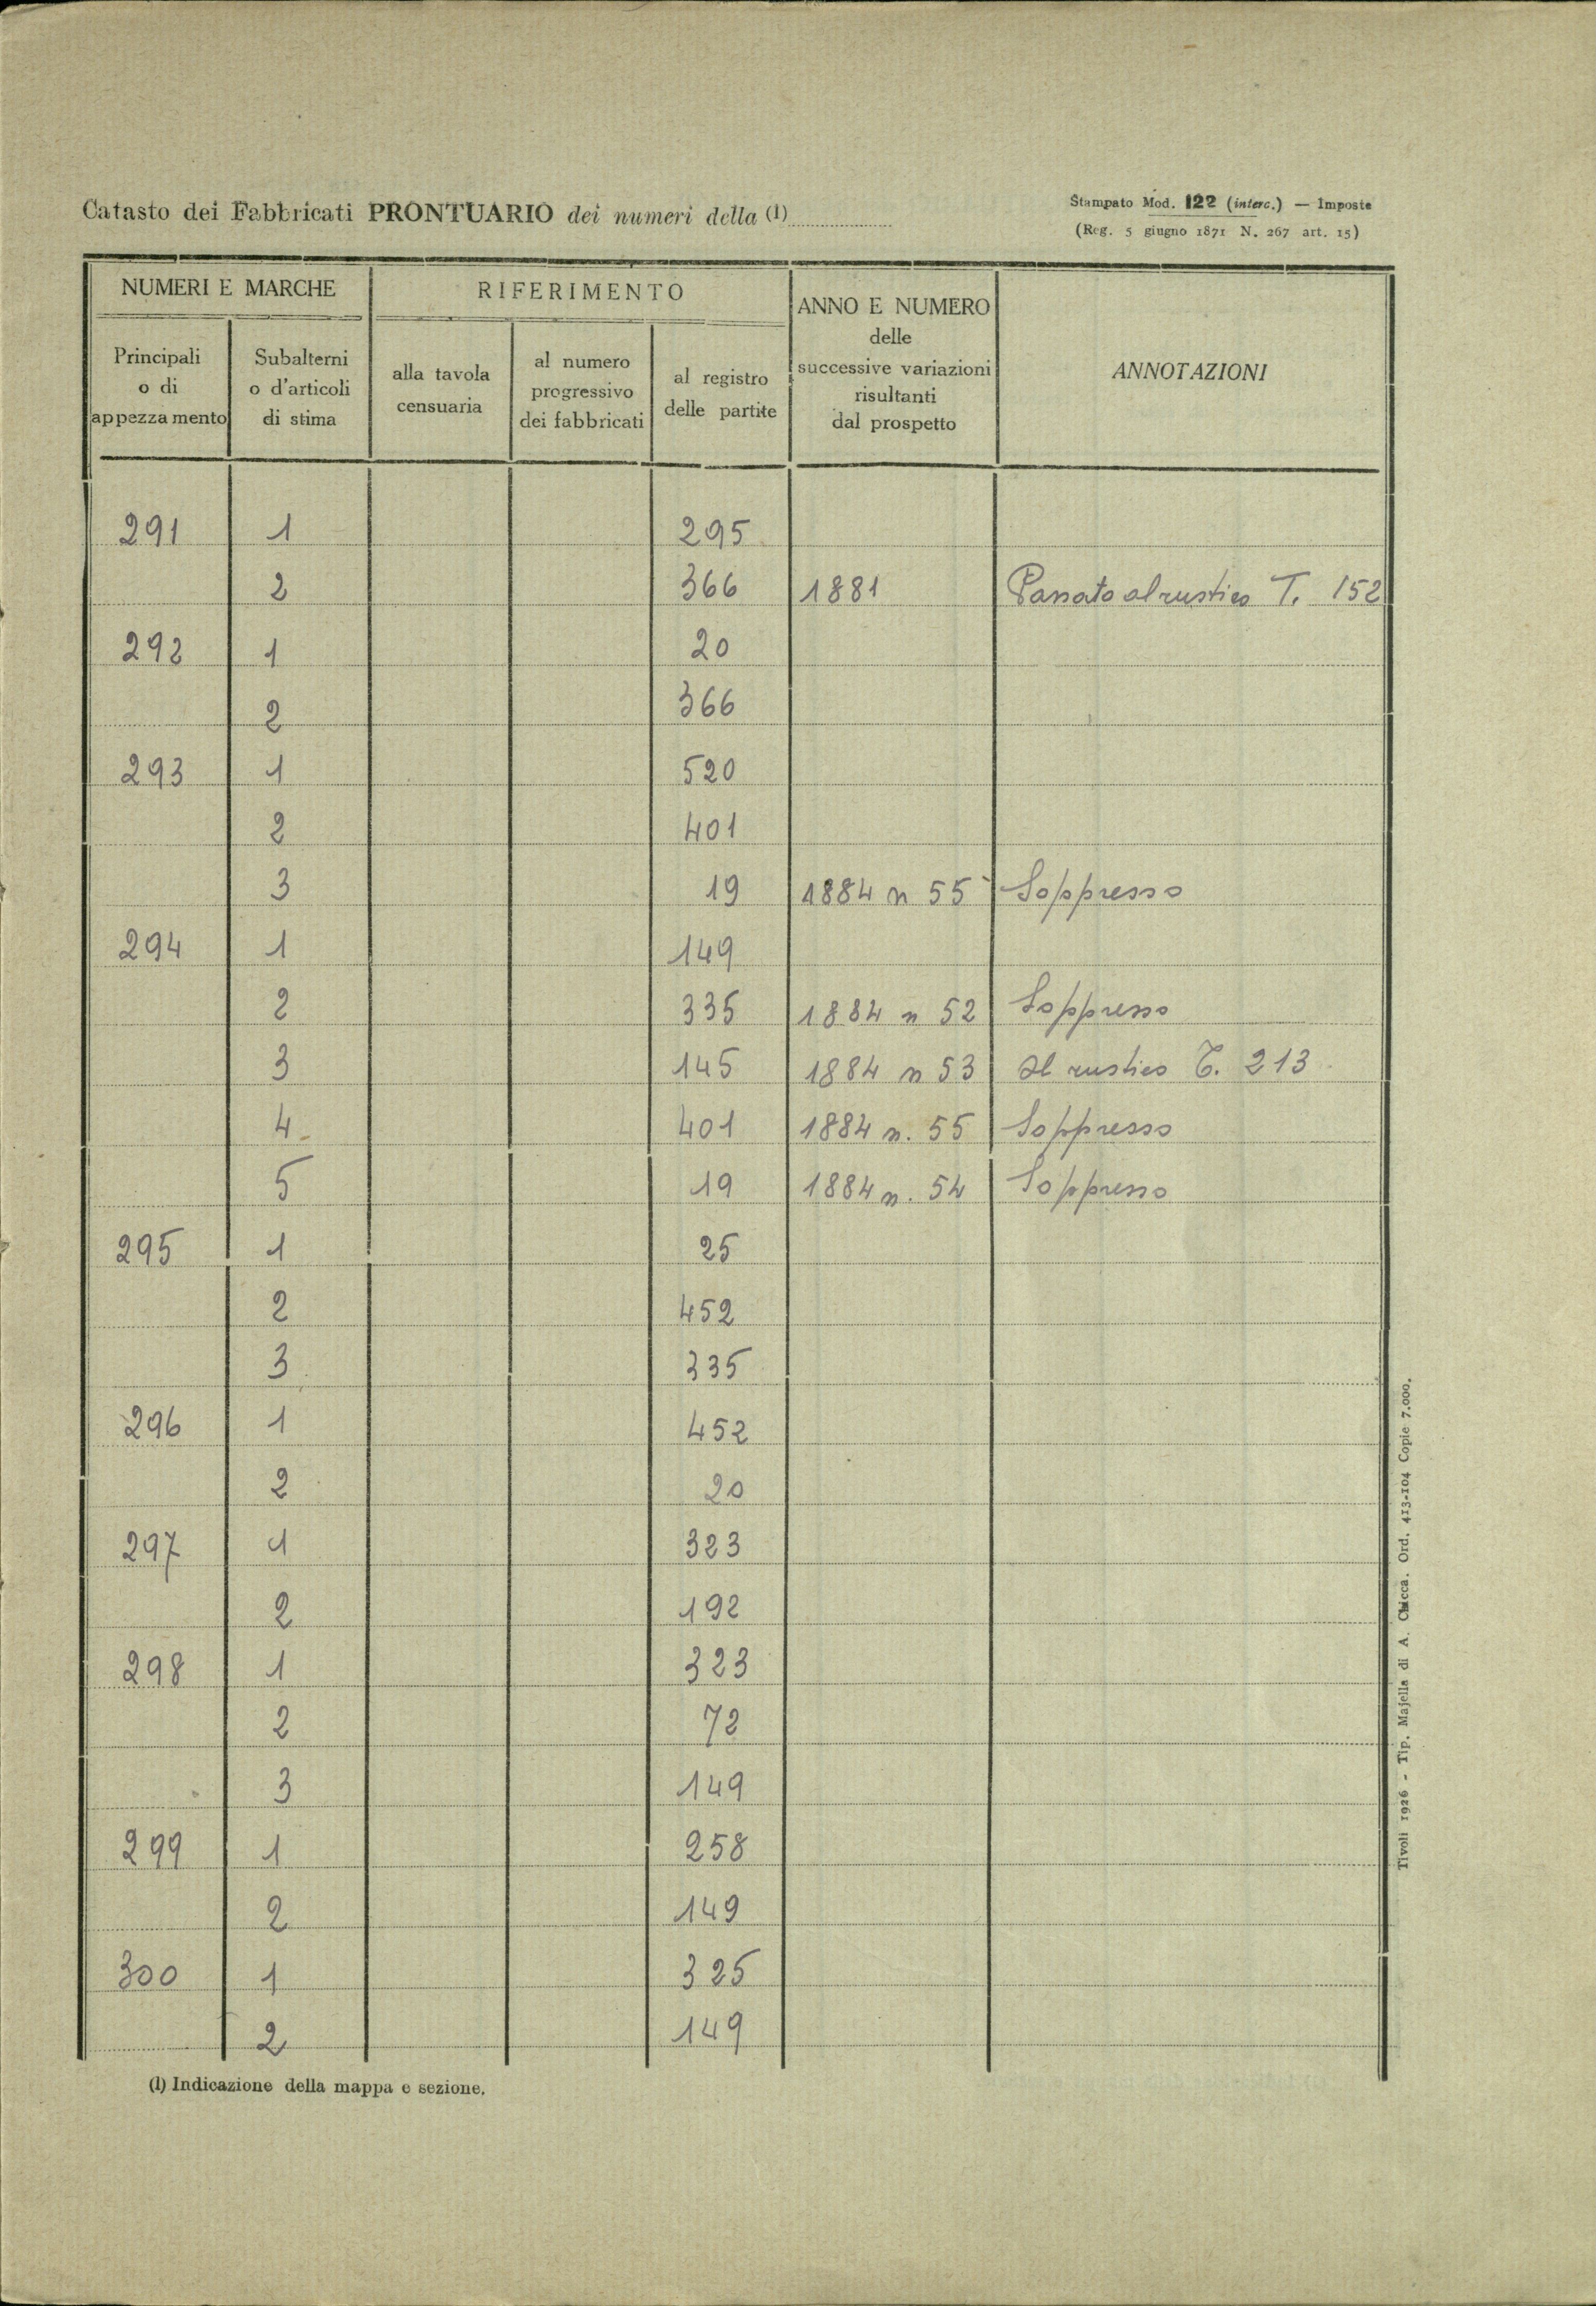 Catasto dei Fabbricati PRONTUARIO dei numeri della (1)
Stampato Mod. 122 (interc.) — Imposte
(Reg. 5 giugno 1871 N. 267 art. 15)
NUMERI E MARCHE
RIFERIMENTO
ANNO E NUMERO
delle
successive variazioni
risultanti
dal prospetto
ANNOTAZIONI
Principali
o di
appezzamento
Subalterni
o d'articoli
di stima
alla tavola
censuaria
al numero
progressivo
dei fabbricati
al registro
delle partite
291 1 295
2 366 1881 Passato al rustico T. 152
292 1 20
2 366
293 1 520
2 401
3 19 1884 n 55 Soppresso
294 1 149
2 335 1884 n 52 Soppresso
3 145 1884 n 53 Al rustico T. 213
4 401 1884 n. 55 Soppresso
5 19 1884 n. 54 Soppresso
295 1 25
2 452
3 335
296 1 452
2 20
297 1 323
2 192
298 1 323
2 72
3 149
299 1 258
2 149
300 1 325
2 149
(1) Indicazione della mappa e sezione.
Tivoli 1926 - Tip. Majella di A. Chicca. Ord. 413-104 Copie 7.000.